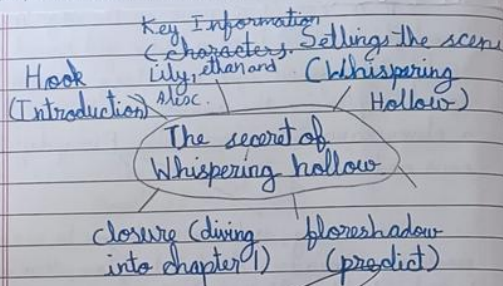 Key Information
(characters.
Lily, ethan and
Alesc.
Settings the scene
(Whispering
Hollow)
Hook
(Introduction)
The seceret of
Whispering hollow
closure (diving
into chapter 1)
floreshadow
(predict)